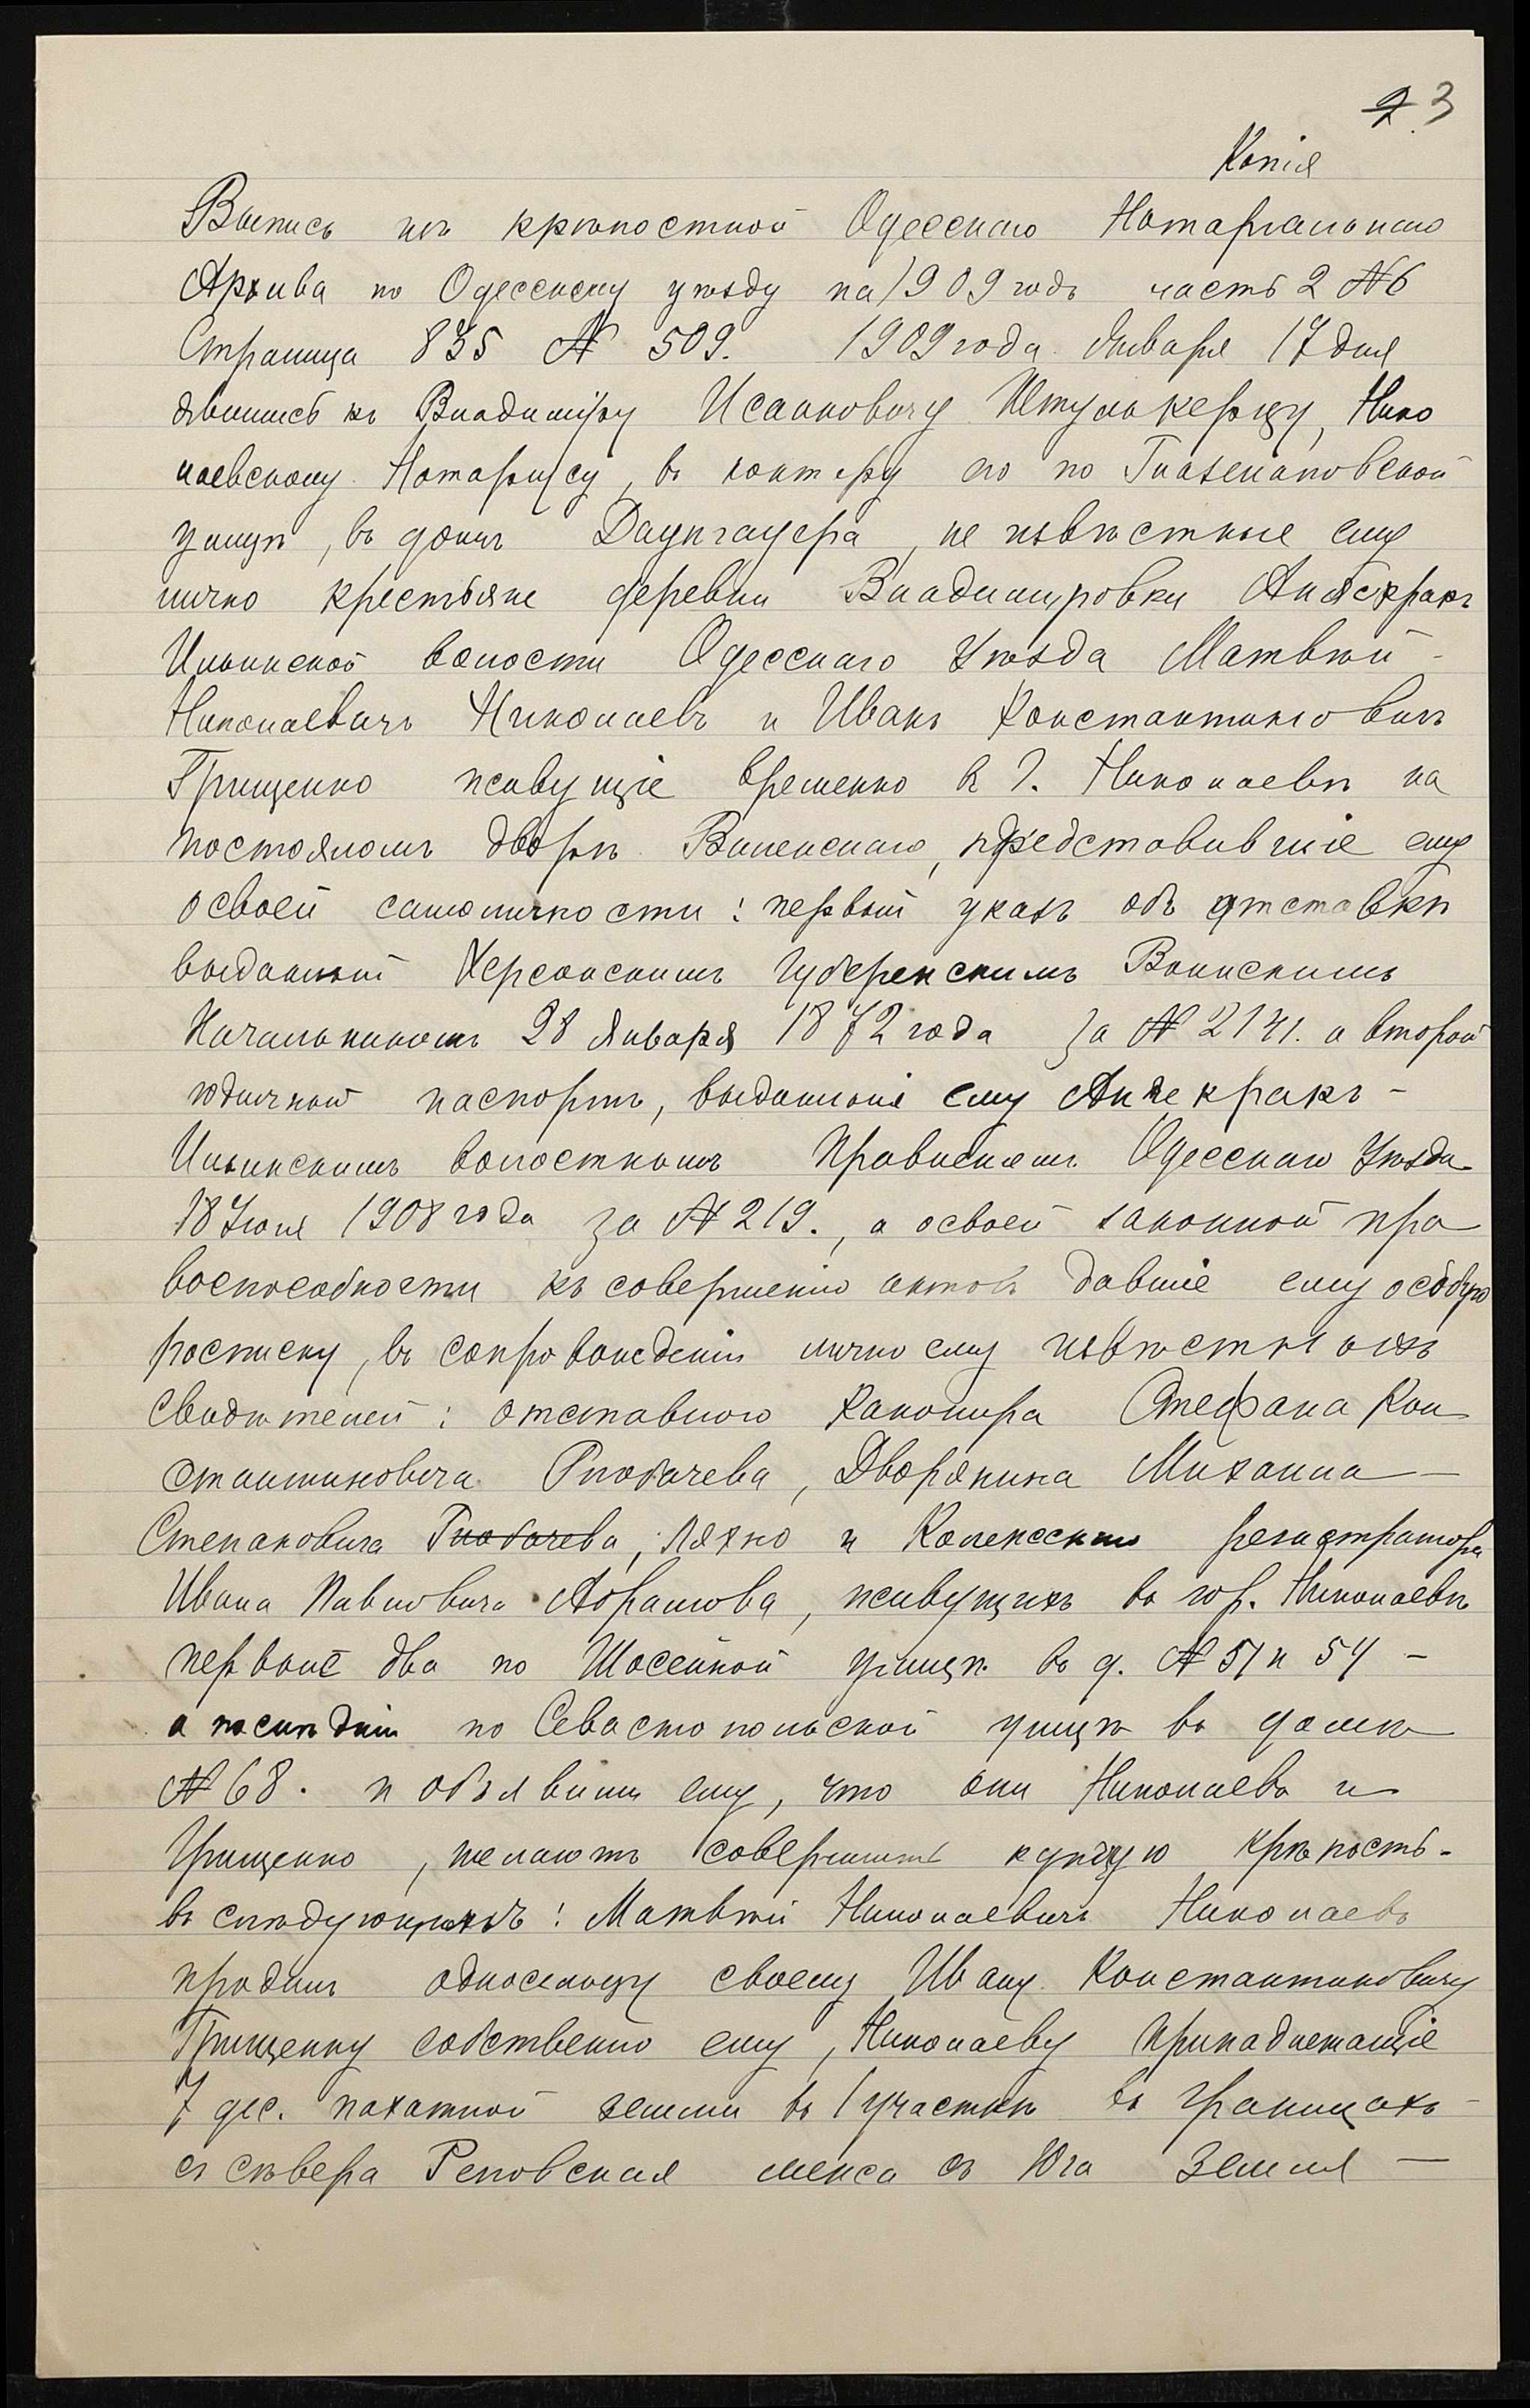 2 3
Копія
Выпись изъ крѣпостной Одесскаго Нотаріальнаго
Архива по Одесскому уѣзду на 1909 годъ часть 2 № 6
Страница 835 № 509. 1909 года Января 17 дня
явились къ Владиміру Исааковичу Штулькерцу, Нико
лаевскому Нотаріусу, въ контору его по Глазенаповской
улицѣ, въ домѣ Даунгауера, не извѣстные ему
лично крестьяне деревни Владимировки Анчекракъ
Ильинской волости Одесскаго Уѣзда Матвѣй -
Николаевичъ Николаевъ и Иванъ Константиновичъ
Грищенко живущіе временно в г. Николаевѣ на
постояломъ дворѣ Виленскаго, представившіе ему
о своей самоличности: первый указъ объ отставкѣ
выданный Херсонскимъ Губернскимъ Воинскимъ
Начальникомъ 28 Января 1872 года за № 2141. а второй
годичный паспортъ, выданный ему Анчекракъ -
Ильинскимъ волостнымъ Правленіемъ Одесскаго Уѣзда
18 Іюня 1908 года за № 219., а о своей законной пра
воспособности къ совершенію актовъ давшіе ему особую
росписку, въ сопровожденіи лично ему извѣстныхъ
Свидѣтелей: отставного Канонира Стефана Кон
стантиновича Глобачева, Дворянина Михаила —
Степановича Глобачева, Ляхно и Колежскаго регистратора
Ивана Павловича Абрамова, живущихъ въ гор. Николаевѣ
первые два по Шосейной улицѣ въ д. № 51 и 54 -
а послѣдній по Севастопольской улицѣ въ домѣ
№ 68. и объявили ему, что они Николаевъ и
Грищенко, желаютъ совершить купчую крѣпость -
въ слѣдующемъ: Матвѣй Николаевичъ Николаевъ
продалъ односельцу своему Ивану Константиновичу
Грищенку собственно ему, Николаеву принадлежащіе
7 дес. пахатной земли въ 1 участкѣ въ границахъ -
съ сѣвера Реповская межа съ Юга Земля —